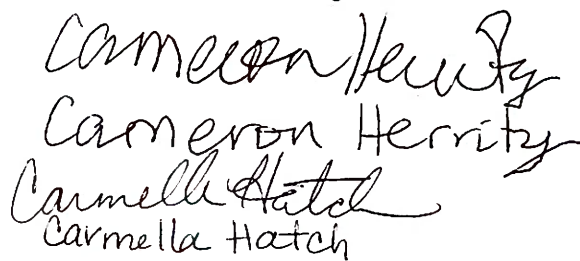 Cameron Herrity
Cameron Herrity
Carmella Hatch
Carmella Hatch